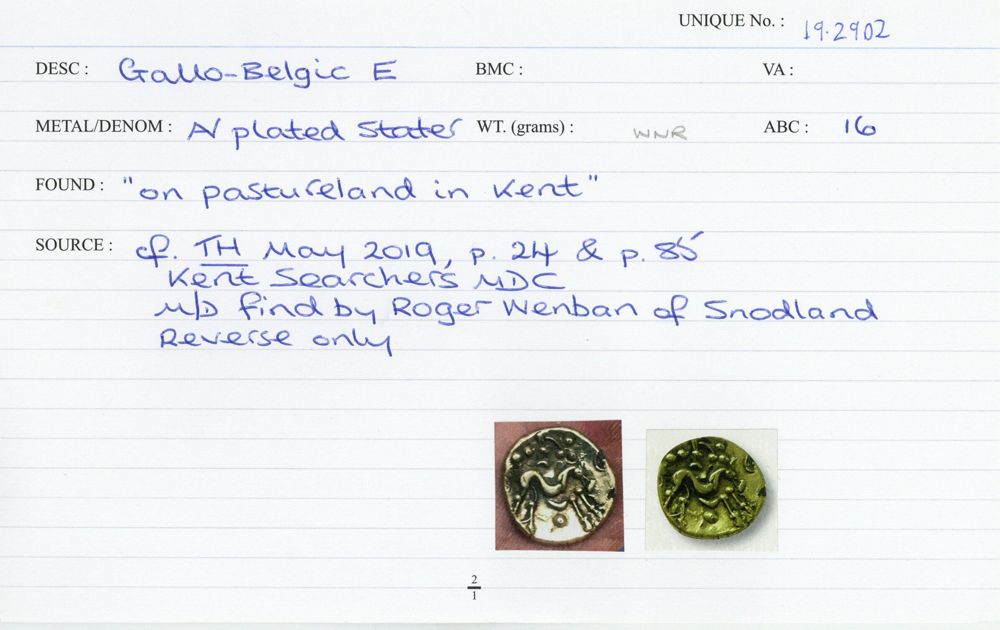 UNIQUE No. : 19.2902
DESC : Gallo-Belgic E BMC : VA :
METAL/DENOM : AV plated Stater WT. (grams) : WNR ABC : 16
FOUND : "on pastureland in Kent"
SOURCE : cf. TH May 2019, p. 24 & p. 85
Kent Searchers MDC
M/D find by Roger Wenban of Snodland
Reverse only
2
1